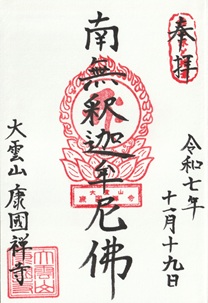 奉拝
令和七年
十一月十九日
南無釈迦牟尼佛
大雲山 康國禅寺